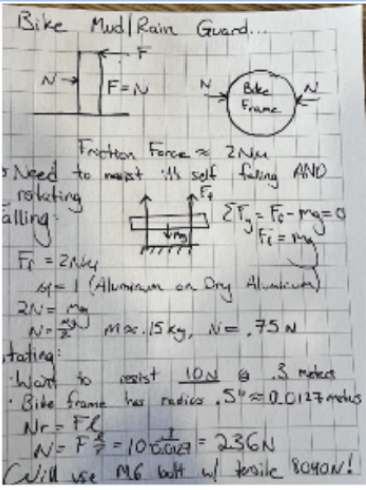 Bike Mud/Rain Guard...
F
N F=N
N Bike Frame N
Friction Force ≈ 2Nμ
Need to resist it's self falling AND
rotating
alling:
Ff
mg
ΣFy = Ff - mg = 0
Ff = mg
Ff = 2Nμ
μ = 1 (Aluminum on Dry Aluminum)
2N = mg
N = mg/2 M ≈ .15 kg, N = .75 N
tating:
Want to resist 10N @ .3 meters
Bike frame has radius .5" ≈ 0.0127 metus
Nr = Fl
N = F l/r = 10 /0.0127 = 236N
Will use M6 bolt w/ tensile 8040N!